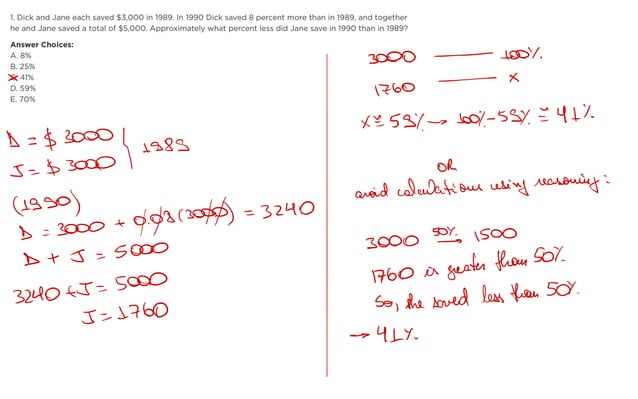 1. Dick and Jane each saved $3,000 in 1989. In 1990 Dick saved 8 percent more than in 1989, and together
he and Jane saved a total of $5,000. Approximately what percent less did Jane save in 1990 than in 1989?
Answer Choices:
A. 8%
B. 25%
C. 41%
D. 59%
E. 70%
D = $ 3000
J = $ 3000
1989
(1990)
D = 3000 + 0.08 (3000) = 3240
D + J = 5000
3240 + J = 5000
J = 1760
3000 —— 100%
1760 —— x
x ≅ 59% → 100% - 59% ≅ 41%
OR
avoid calculations using reasoning:
3000 50% → 1500
1760 is greater than 50%.
So, she saved less than 50%.
→ 41%.